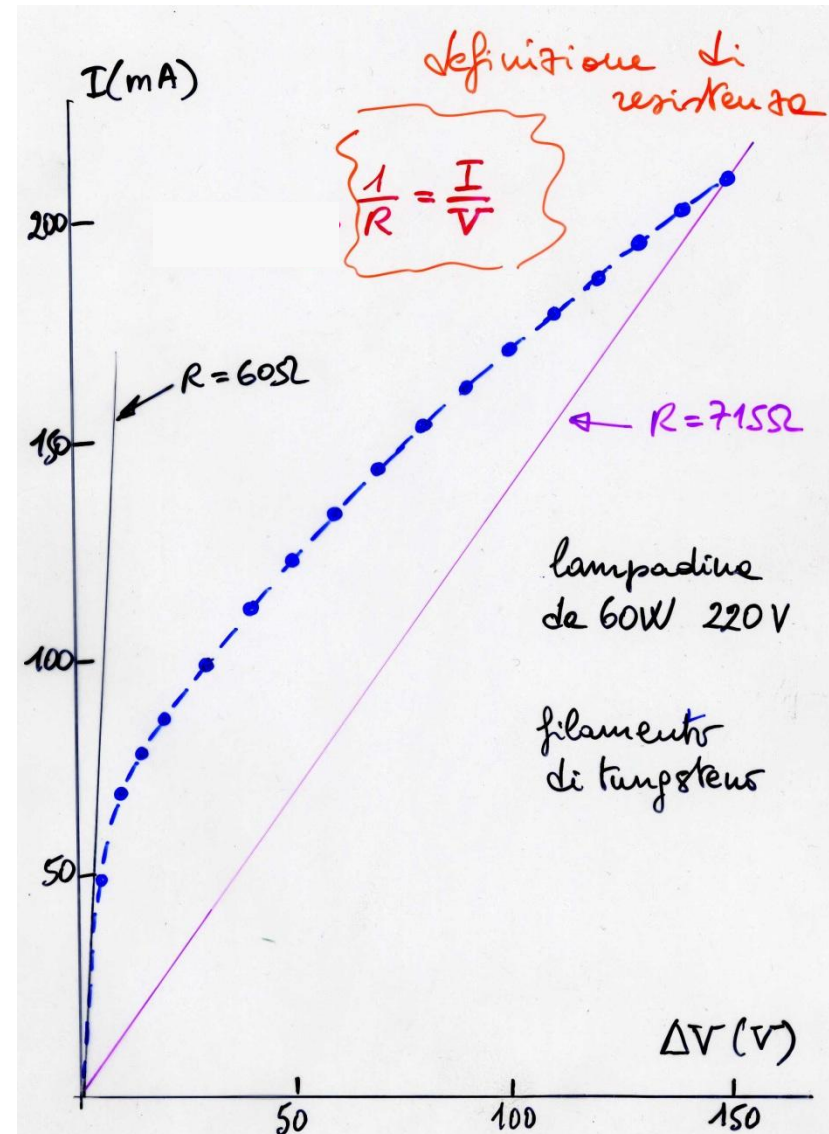 definizione di
resistenza
I(mA)
1/R = I/V
200
R = 60Ω
150
R = 715Ω
lampadina
da 60W 220V
100
filamento
di tungsteno
50
ΔV (V)
50 100 150